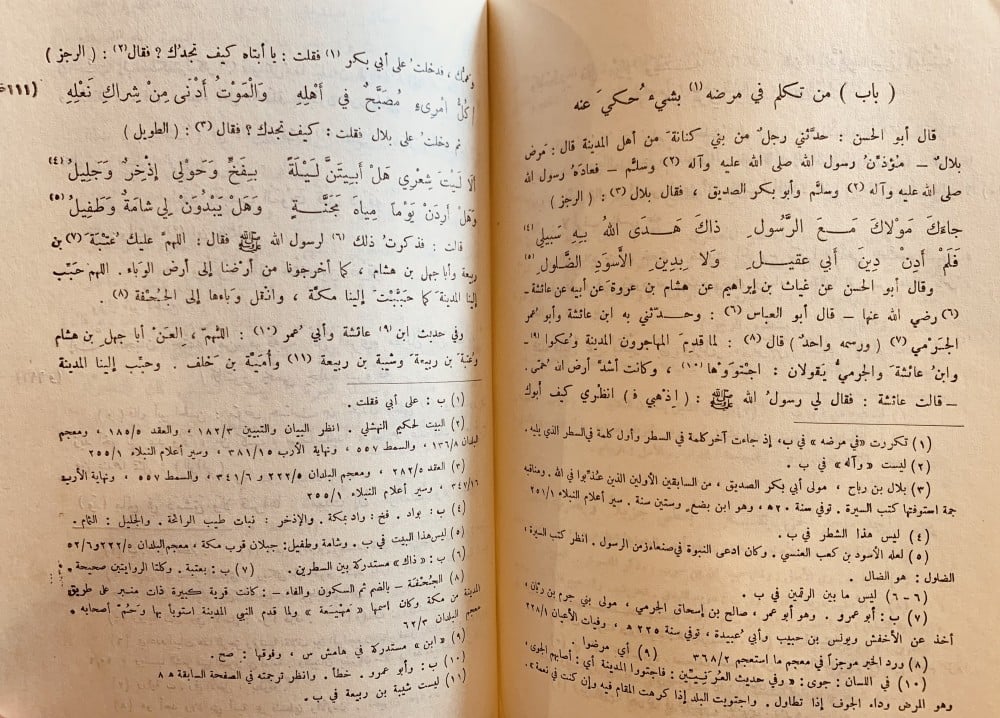 ( باب ) من تكلم في مرضه (١) بشيء حُكيَ عنه
قال أبو الحسن : حدّثني رجلٌ من بني كنانةَ من أهل المدينة قال : مَرِض
بلالٌ ــ مُؤذّنُ رسول الله صلى الله عليه وآله (٢) وسلّم ــ فعادَه رسول الله
صلى الله عليه وآله (٢) وسلّم وأبو بكر الصديق ، فقال بلال (٣) : ( الرجز )
جاءَكَ مَوْلاكَ مَعَ الرَّسُولِ ذاكَ هَدَى اللهُ بِهِ سَبيلي (٤)
فَلَمْ أدِنْ دِينَ أَبي عقيلِ وَلا بِدِينِ الأَسوَدِ الضَّلولِ (٥)
وقال أبو الحسن عن غياث بن إبراهيم عن هشام بن عروة عن أبيه عن عائشة ــ
(٦) رضي الله عنها ــ قال أبو العباس (٦) : وحدّثني به ابن عائشة وأبو عُمر
الجَرْمي (٧) ( ورسمه واحد ) قال (٨) : لما قدِمَ المهاجرون المدينة وُعكوا (٩) ــ
وابنُ عائشة والجرميُّ يَقولان : اجتَوَوْها (١٠) ، وكانت أشدَّ أرض الله حُمّى .
ــ قالت عائشة : فقال لي رسولُ الله ﷺ : ( اذهبي فـ ) انظُري كيف أبوك
(١) تكررت «في مرضه» في ب، إذ جاءت آخر كلمة في السطر وأول كلمة في السطر الذي يليه .
(٢) ليست «وآله» في ب .
(٣) بلال بن رباح ، مولى أبي بكر الصديق ، من السابقين الأولين الذين عُذّبوا في الله . ومناقبه
جمة استوفتها كتب السيرة . توفي سنة ٢٠هـ ، وهو ابن بضع وستين سنة . سير أعلام النبلاء ٢٥١/١
(٤) ليس هذا الشطر في ب .
(٥) لعله الأسود بن كعب العنسي . وكان ادعى النبوة في صنعاء زمن الرسول . انظر كتب السيرة ،
الضلول : هو الضال .
(٦ - ٦) ليس ما بين الرقمين في ب .
(٧) ب : أبو عمرو . وهو أبو عمر ، صالح بن إسحاق الجرمي ، مولى بني جرم بن ربّان ،
أخذ عن الأخفش ويونس بن حبيب وأبي عبيدة ، توفي سنة ٢٢٥ هـ ، وفيات الأعيان ٢٢٨/١
(٨) ورد الخبر موجزاً في معجم ما استعجم ٣٦٨/٢ (٩) أي مرضوا .
(١٠) في اللسان : جوى : «وفي حديث العُرَنيِّين : فاجتووا المدينة أي : أصابهم الجوى ،
وهو المرض وداء الجوف إذا تطاول . واجتويت البلد إذا كرهت المقام فيه وإن كنت في نعمة» .
وعمُّك ، فدخلتُ على أبي بكر (١) فقلت : يا أبتاه كيف تجدك ؟ فقال (٢) : ( الرجز )
كلُّ امرِىءٍ مُصَبَّحٌ في أهْلِهِ وَالْمَوْتُ أدْنى مِنْ شِراكِ نَعْلِهِ (١١١
ثم دخلتُ على بلال فقلت : كيف تجدك ؟ فقال (٣) : ( الطويل )
ألا لَيتَ شِعْري هَلْ أبِيتَنَّ لَيْلَةً بِفَخٍّ وَحَوْلي إذْخِرٌ وَجَليلُ (٤)
وَهَلْ أرِدَنْ يَوْماً مِياهَ مِجَنَّةٍ وَهَلْ يَبْدُوَنْ لي شامَةٌ وَطَفِيلُ (٥)
قالت : فذكرتُ ذلك (٦) لرسول الله ﷺ فقال : اللهمّ عليك عُتبَةَ (٧) بن
ربيعة وأبا جهل بن هشام ، كما أخرجونا من أرْضنا إلى أرض الوَباء . اللهم حَبّب
إلينا المدينة كما حَبّبْتَ إلينا مكّة ، وانقل وَباءها إلى الجُحْفة (٨) .
وفي حديث ابن (٩) عائشة وأبي عُمر (١٠) : اللهمّ ، العَنْ أبا جهل بن هشام
وعُتبةَ بن ربيعةَ وشيبة بن ربيعة (١١) وأُميّة بن خَلف . وحبّب إلينا المدينة
(١) ب : على أبي فقلت .
(٢) البيت لحكيم النهشلي . انظر البيان والتبيين ١٨٢/٣ ، والعقد ١٨٥/٥ ، ومعجم
البلدان ١٣٦/٨ ، والسمط ٥٥٧ ، ونهاية الأرب ٣٨١/١٥ ، وسير أعلام النبلاء ٢٥٥/١
(٣) العقد ٢٨٢/٥ ، ومعجم البلدان ٢٢٢/٥ و ٣٤١/٦ ، والسمط ٥٥٧ ، ونهاية الأرب
٣٤٢/١٦ ، وسير أعلام النبلاء ٢٥٥/١
(٤) ب : بواد . فخ : واد بمكة . والإذخر : نبات طيب الرائحة . والجليل : الثمام .
(٥) ليس هذا البيت في ب . وشامة وطفيل : جبلان قرب مكة ، معجم البلدان ٢٢٢/٥ و ٥٢/٦
(٦) ب : «ذاك» مستدركة بين السطرين . (٧) ب : بعتبة . وكلتا الروايتين صحيحة .
(٨) الجُحْفَة ــ بالضم ثم السكون والفاء ــ : كانت قرية كبيرة ذات منبر على طريق
المدينة من مكة وكان اسمها «مَهْيَعة» ولما قدم النبي المدينة استوبأ بها وحُمّ أصحابه .
معجم البلدان ٦٢/٣
(٩) «ابن» مستدركة في هامش س ، وفوقها : صح .
(١٠) ب : وأبو عمرو . خطأ . وانظر ترجمته في الصفحة السابقة هـ ٨
(١١) ليست شيبة بن ربيعة في ب .